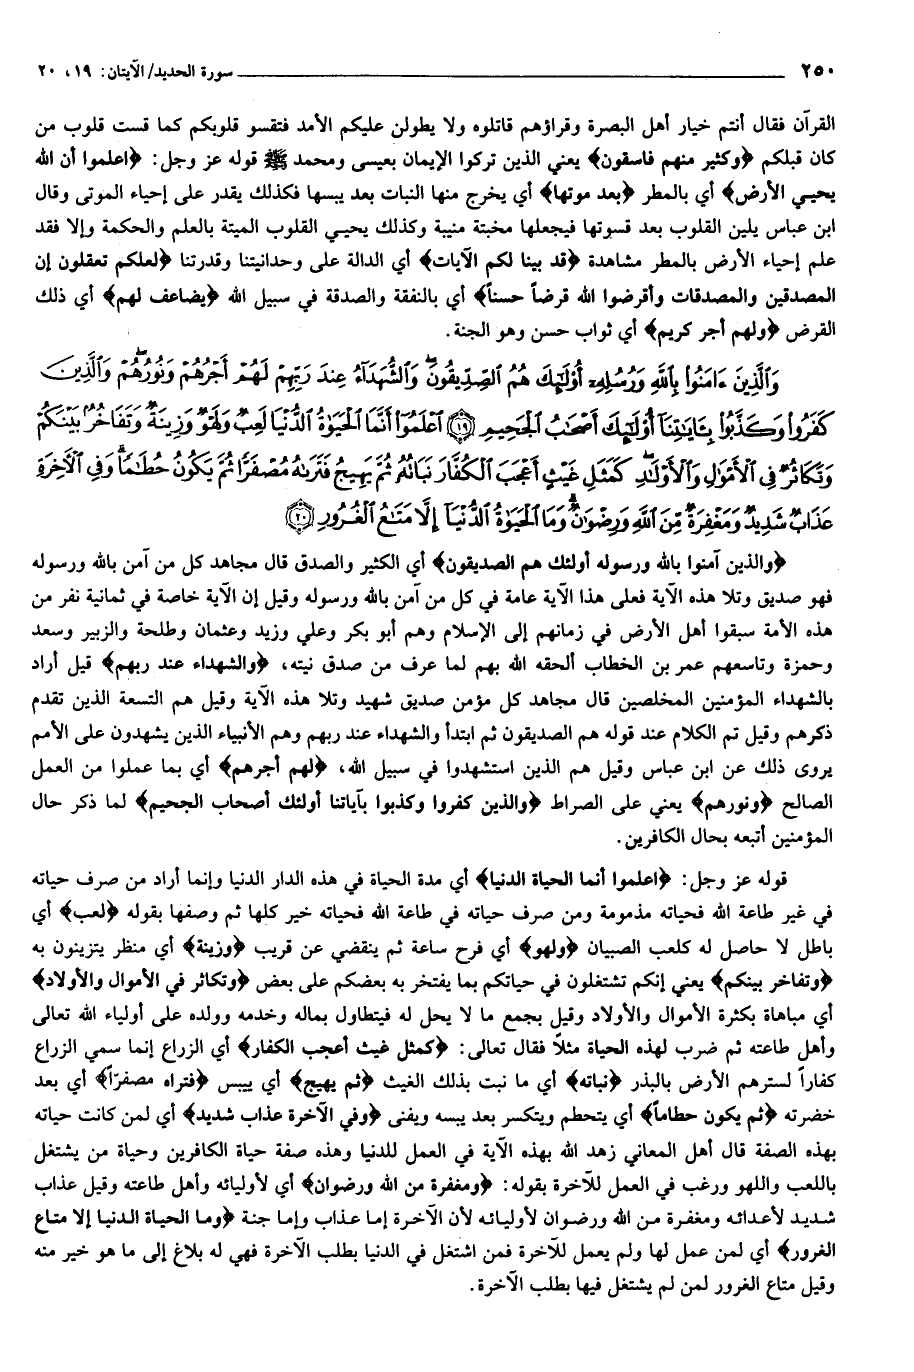 ٢٥٠ سورة الحديد/ الآيتان: ١٩، ٢٠
القرآن فقال أنتم خيار أهل البصرة وقراؤهم قاتلوه ولا يطولن عليكم الأمد فتقسو قلوبكم كما قست قلوب من
كان قبلكم ﴿وكثير منهم فاسقون﴾ يعني الذين تركوا الإيمان بعيسى ومحمد ﷺ قوله عز وجل: ﴿اعلموا أن الله
يحيـي الأرض﴾ أي بالمطر ﴿بعد موتها﴾ أي يخرج منها النبات بعد يبسها فكذلك يقدر على إحياء الموتى وقال
ابن عباس يلين القلوب بعد قسوتها فيجعلها مخبتة منيبة وكذلك يحيـي القلوب الميتة بالعلم والحكمة وإلا فقد
علم إحياء الأرض بالمطر مشاهدة ﴿قد بينا لكم الآيات﴾ أي الدالة على وحدانيتنا وقدرتنا ﴿لعلكم تعقلون إن
المصدقين والمصدقات وأقرضوا الله قرضاً حسناً﴾ أي بالنفقة والصدقة في سبيل الله ﴿يضاعف لهم﴾ أي ذلك
القرض ﴿ولهم أجر كريم﴾ أي ثواب حسن وهو الجنة.
وَٱلَّذِينَ ءَامَنُوا۟ بِٱللَّهِ وَرُسُلِهِۦٓ أُو۟لَٰٓئِكَ هُمُ ٱلصِّدِّيقُونَ ۖ وَٱلشُّهَدَآءُ عِندَ رَبِّهِمْ لَهُمْ أَجْرُهُمْ وَنُورُهُمْ ۖ وَٱلَّذِينَ
كَفَرُوا۟ وَكَذَّبُوا۟ بِـَٔايَٰتِنَآ أُو۟لَٰٓئِكَ أَصْحَٰبُ ٱلْجَحِيمِ ﴿١٩﴾ ٱعْلَمُوٓا۟ أَنَّمَا ٱلْحَيَوٰةُ ٱلدُّنْيَا لَعِبٌ وَلَهْوٌ وَزِينَةٌ وَتَفَاخُرٌۢ بَيْنَكُمْ
وَتَكَاثُرٌ فِى ٱلْأَمْوَٰلِ وَٱلْأَوْلَٰدِ ۖ كَمَثَلِ غَيْثٍ أَعْجَبَ ٱلْكُفَّارَ نَبَاتُهُۥ ثُمَّ يَهِيجُ فَتَرَىٰهُ مُصْفَرًّا ثُمَّ يَكُونُ حُطَٰمًا ۖ وَفِى ٱلْـَٔاخِرَةِ
عَذَابٌ شَدِيدٌ وَمَغْفِرَةٌ مِّنَ ٱللَّهِ وَرِضْوَٰنٌ ۚ وَمَا ٱلْحَيَوٰةُ ٱلدُّنْيَآ إِلَّا مَتَٰعُ ٱلْغُرُورِ ﴿٢٠﴾
﴿والذين آمنوا بالله ورسوله أولئك هم الصديقون﴾ أي الكثير والصدق قال مجاهد كل من آمن بالله ورسوله
فهو صديق وتلا هذه الآية فعلى هذا الآية عامة في كل من آمن بالله ورسوله وقيل إن الآية خاصة في ثمانية نفر من
هذه الأمة سبقوا أهل الأرض في زمانهم إلى الإسلام وهم أبو بكر وعلي وزيد وعثمان وطلحة والزبير وسعد
وحمزة وتاسعهم عمر بن الخطاب ألحقه الله بهم لما عرف من صدق نيته، ﴿والشهداء عند ربهم﴾ قيل أراد
بالشهداء المؤمنين المخلصين قال مجاهد كل مؤمن صديق شهيد وتلا هذه الآية وقيل هم التسعة الذين تقدم
ذكرهم وقيل تم الكلام عند قوله هم الصديقون ثم ابتدأ والشهداء عند ربهم وهم الأنبياء الذين يشهدون على الأمم
يروى ذلك عن ابن عباس وقيل هم الذين استشهدوا في سبيل الله، ﴿لهم أجرهم﴾ أي بما عملوا من العمل
الصالح ﴿ونورهم﴾ يعني على الصراط ﴿والذين كفروا وكذبوا بآياتنا أولئك أصحاب الجحيم﴾ لما ذكر حال
المؤمنين أتبعه بحال الكافرين.
قوله عز وجل: ﴿اعلموا أنما الحياة الدنيا﴾ أي مدة الحياة في هذه الدار الدنيا وإنما أراد من صرف حياته
في غير طاعة الله فحياته مذمومة ومن صرف حياته في طاعة الله فحياته خير كلها ثم وصفها بقوله ﴿لعب﴾ أي
باطل لا حاصل له كلعب الصبيان ﴿ولهو﴾ أي فرح ساعة ثم ينقضي عن قريب ﴿وزينة﴾ أي منظر يتزينون به
﴿وتفاخر بينكم﴾ يعني إنكم تشتغلون في حياتكم بما يفتخر به بعضكم على بعض ﴿وتكاثر في الأموال والأولاد﴾
أي مباهاة بكثرة الأموال والأولاد وقيل بجمع ما لا يحل له فيتطاول بماله وخدمه وولده على أولياء الله تعالى
وأهل طاعته ثم ضرب لهذه الحياة مثلاً فقال تعالى: ﴿كمثل غيث أعجب الكفار﴾ أي الزراع إنما سمي الزراع
كفاراً لسترهم الأرض بالبذر ﴿نباته﴾ أي ما نبت بذلك الغيث ﴿ثم يهيج﴾ أي ييبس ﴿فتراه مصفرّاً﴾ أي بعد
خضرته ﴿ثم يكون حطاماً﴾ أي يتحطم ويتكسر بعد يبسه ويفنى ﴿وفي الآخرة عذاب شديد﴾ أي لمن كانت حياته
بهذه الصفة قال أهل المعاني زهد الله بهذه الآية في العمل للدنيا وهذه صفة حياة الكافرين وحياة من يشتغل
باللعب واللهو ورغب في العمل للآخرة بقوله: ﴿ومغفرة من الله ورضوان﴾ أي لأوليائه وأهل طاعته وقيل عذاب
شديد لأعدائه ومغفرة من الله ورضوان لأوليائه لأن الآخرة إما عذاب وإما جنة ﴿وما الحياة الدنيا إلا متاع
الغرور﴾ أي لمن عمل لها ولم يعمل للآخرة فمن اشتغل في الدنيا بطلب الآخرة فهي له بلاغ إلى ما هو خير منه
وقيل متاع الغرور لمن لم يشتغل فيها بطلب الآخرة.